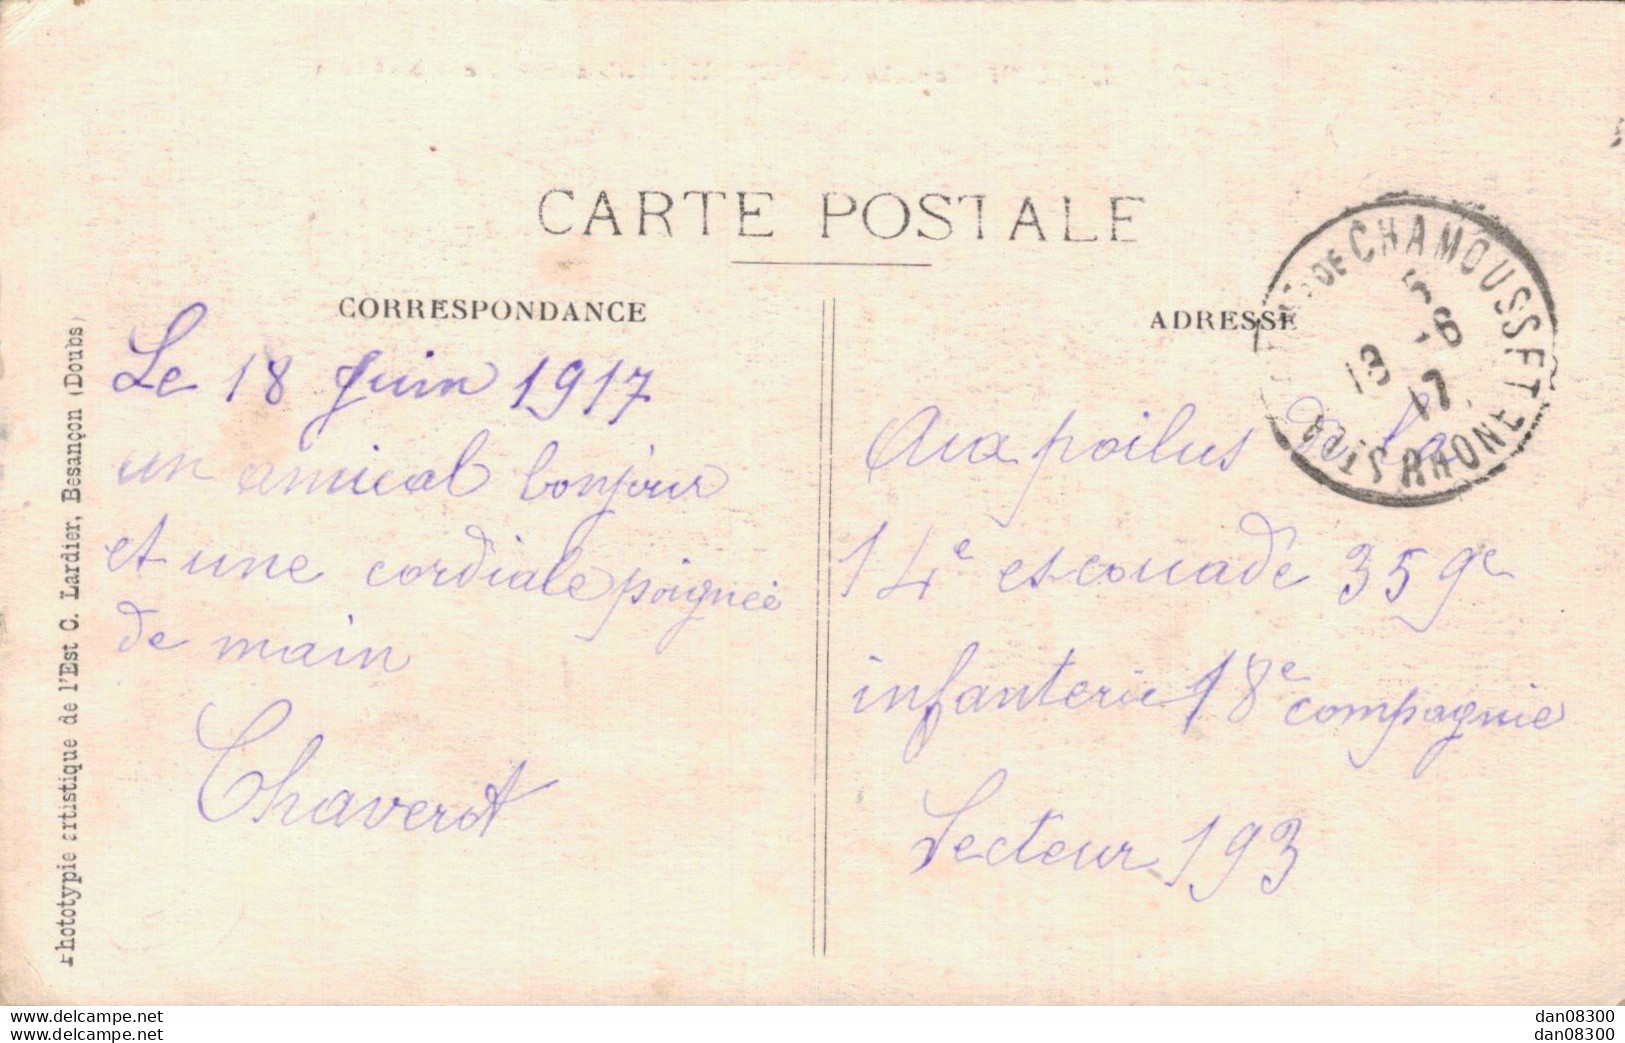 CARTE POSTALE
CORRESPONDANCE
Le 18 Juin 1917
un amical bonjour
et une cordiale poignée
de main
Chaverot
ADRESSE
Aux poilus de la
14e escouade 359e
infanterie 18e compagnie
Secteur 193
DE CHAMOUSSET
5
18 -6
17
RHONE
Phototypie artistique de l'Est C. Lardier, Besançon (Doubs)
www.delcampe.net
www.delcampe.net
dan08300
dan08300